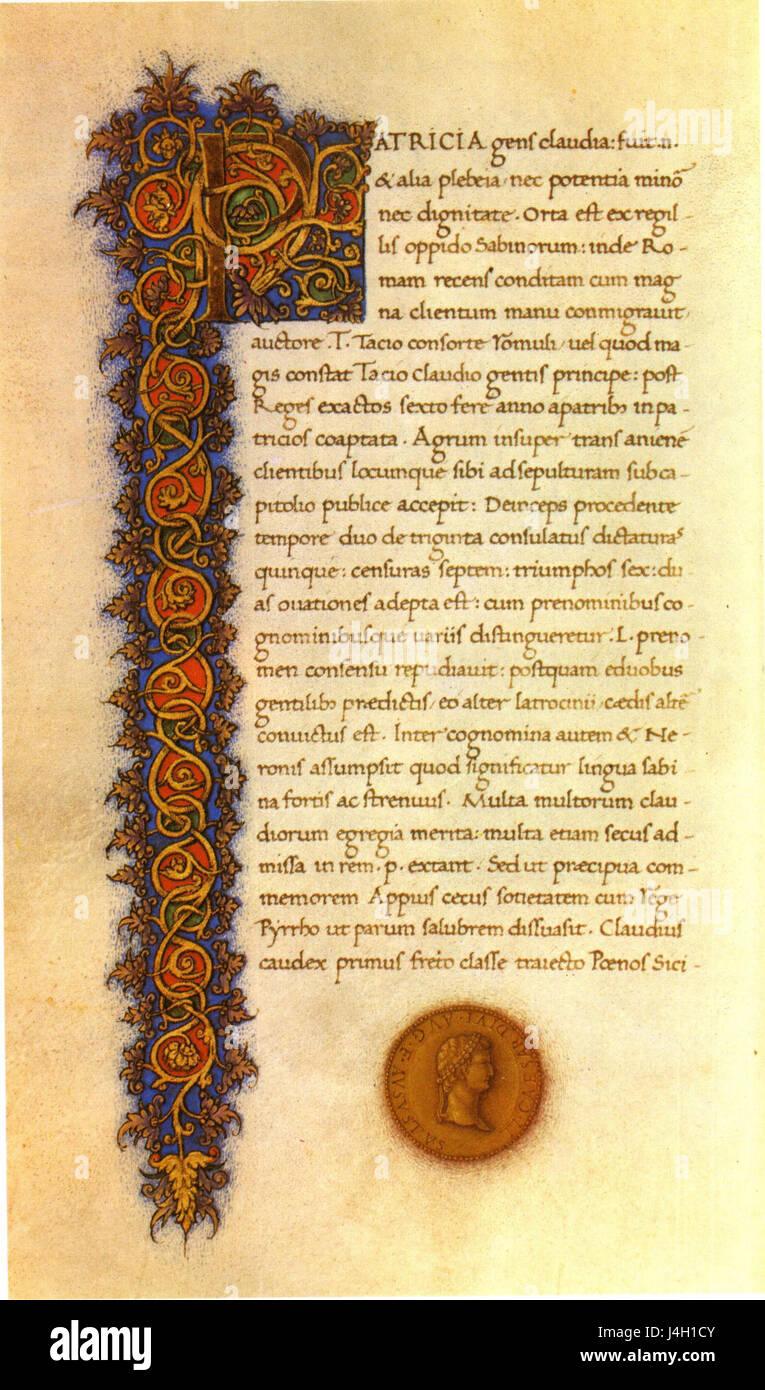 PATRICIA gens claudia: fuit .n.
& alia plebeia, nec potentia minõ
nec dignitate. Orta est ex regil-
lis oppido Sabinorum: inde Ro-
mam recens conditam cum mag
na clientum manu conmigravit,
auctore .T. Tacio consorte romuli, uel quod ma-
gis constat Tacio Claudio gentis principe: post
Reges exactos sexto fere anno apatribꝰ inpa-
tricios coaptata. Agrum insuper trans anienẽ
clientibus locumque sibi adsepulturam subca-
pitolio publice accepit: Deinceps procedente
tempore duo de triginta consulatus dictaturas
quinque: censuras septem: triumphos sex: du-
as ouationes adepta est: cum prenominibus co-
gnominibusque variis distingueretur. L. preno-
men consensu repudiauit: postquam eduobus
gentilibꝰ prædictis, eo alter latrocinii, cædis altẽ
conuictus est. Inter cognomina autem & Ne-
ronis assumpsit quod significatur lingua sabi
na fortis ac strenuus. Multa multorum clau-
diorum egregia merita: multa etiam secus ad-
missa in rem .p. extant. Sed ut præcipua com-
memorem Appius cecus sotietatem cum rege
Pyrrho ut parum salubrem dissuasit. Claudius
caudex primus freto classe traiecto Pœnos Sici-
alamy
a
alamy
Image ID: J4H1CY
www.alamy.com